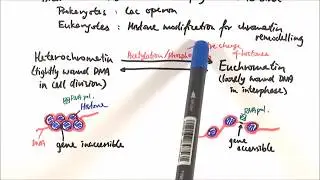 Prokaryotes : Lac operon
Eukaryotes : Histone modification for chromatin
remodelling
Acetylation/Phospho
+ve charge
of histones
Heterochromatin
(tightly wound DNA
in cell division)
Euchromatin
(loosely wound DNA
in interphase)
RNA pol.
Histone
DNA
gene inaccessible
RNA pol.
gene
accessible